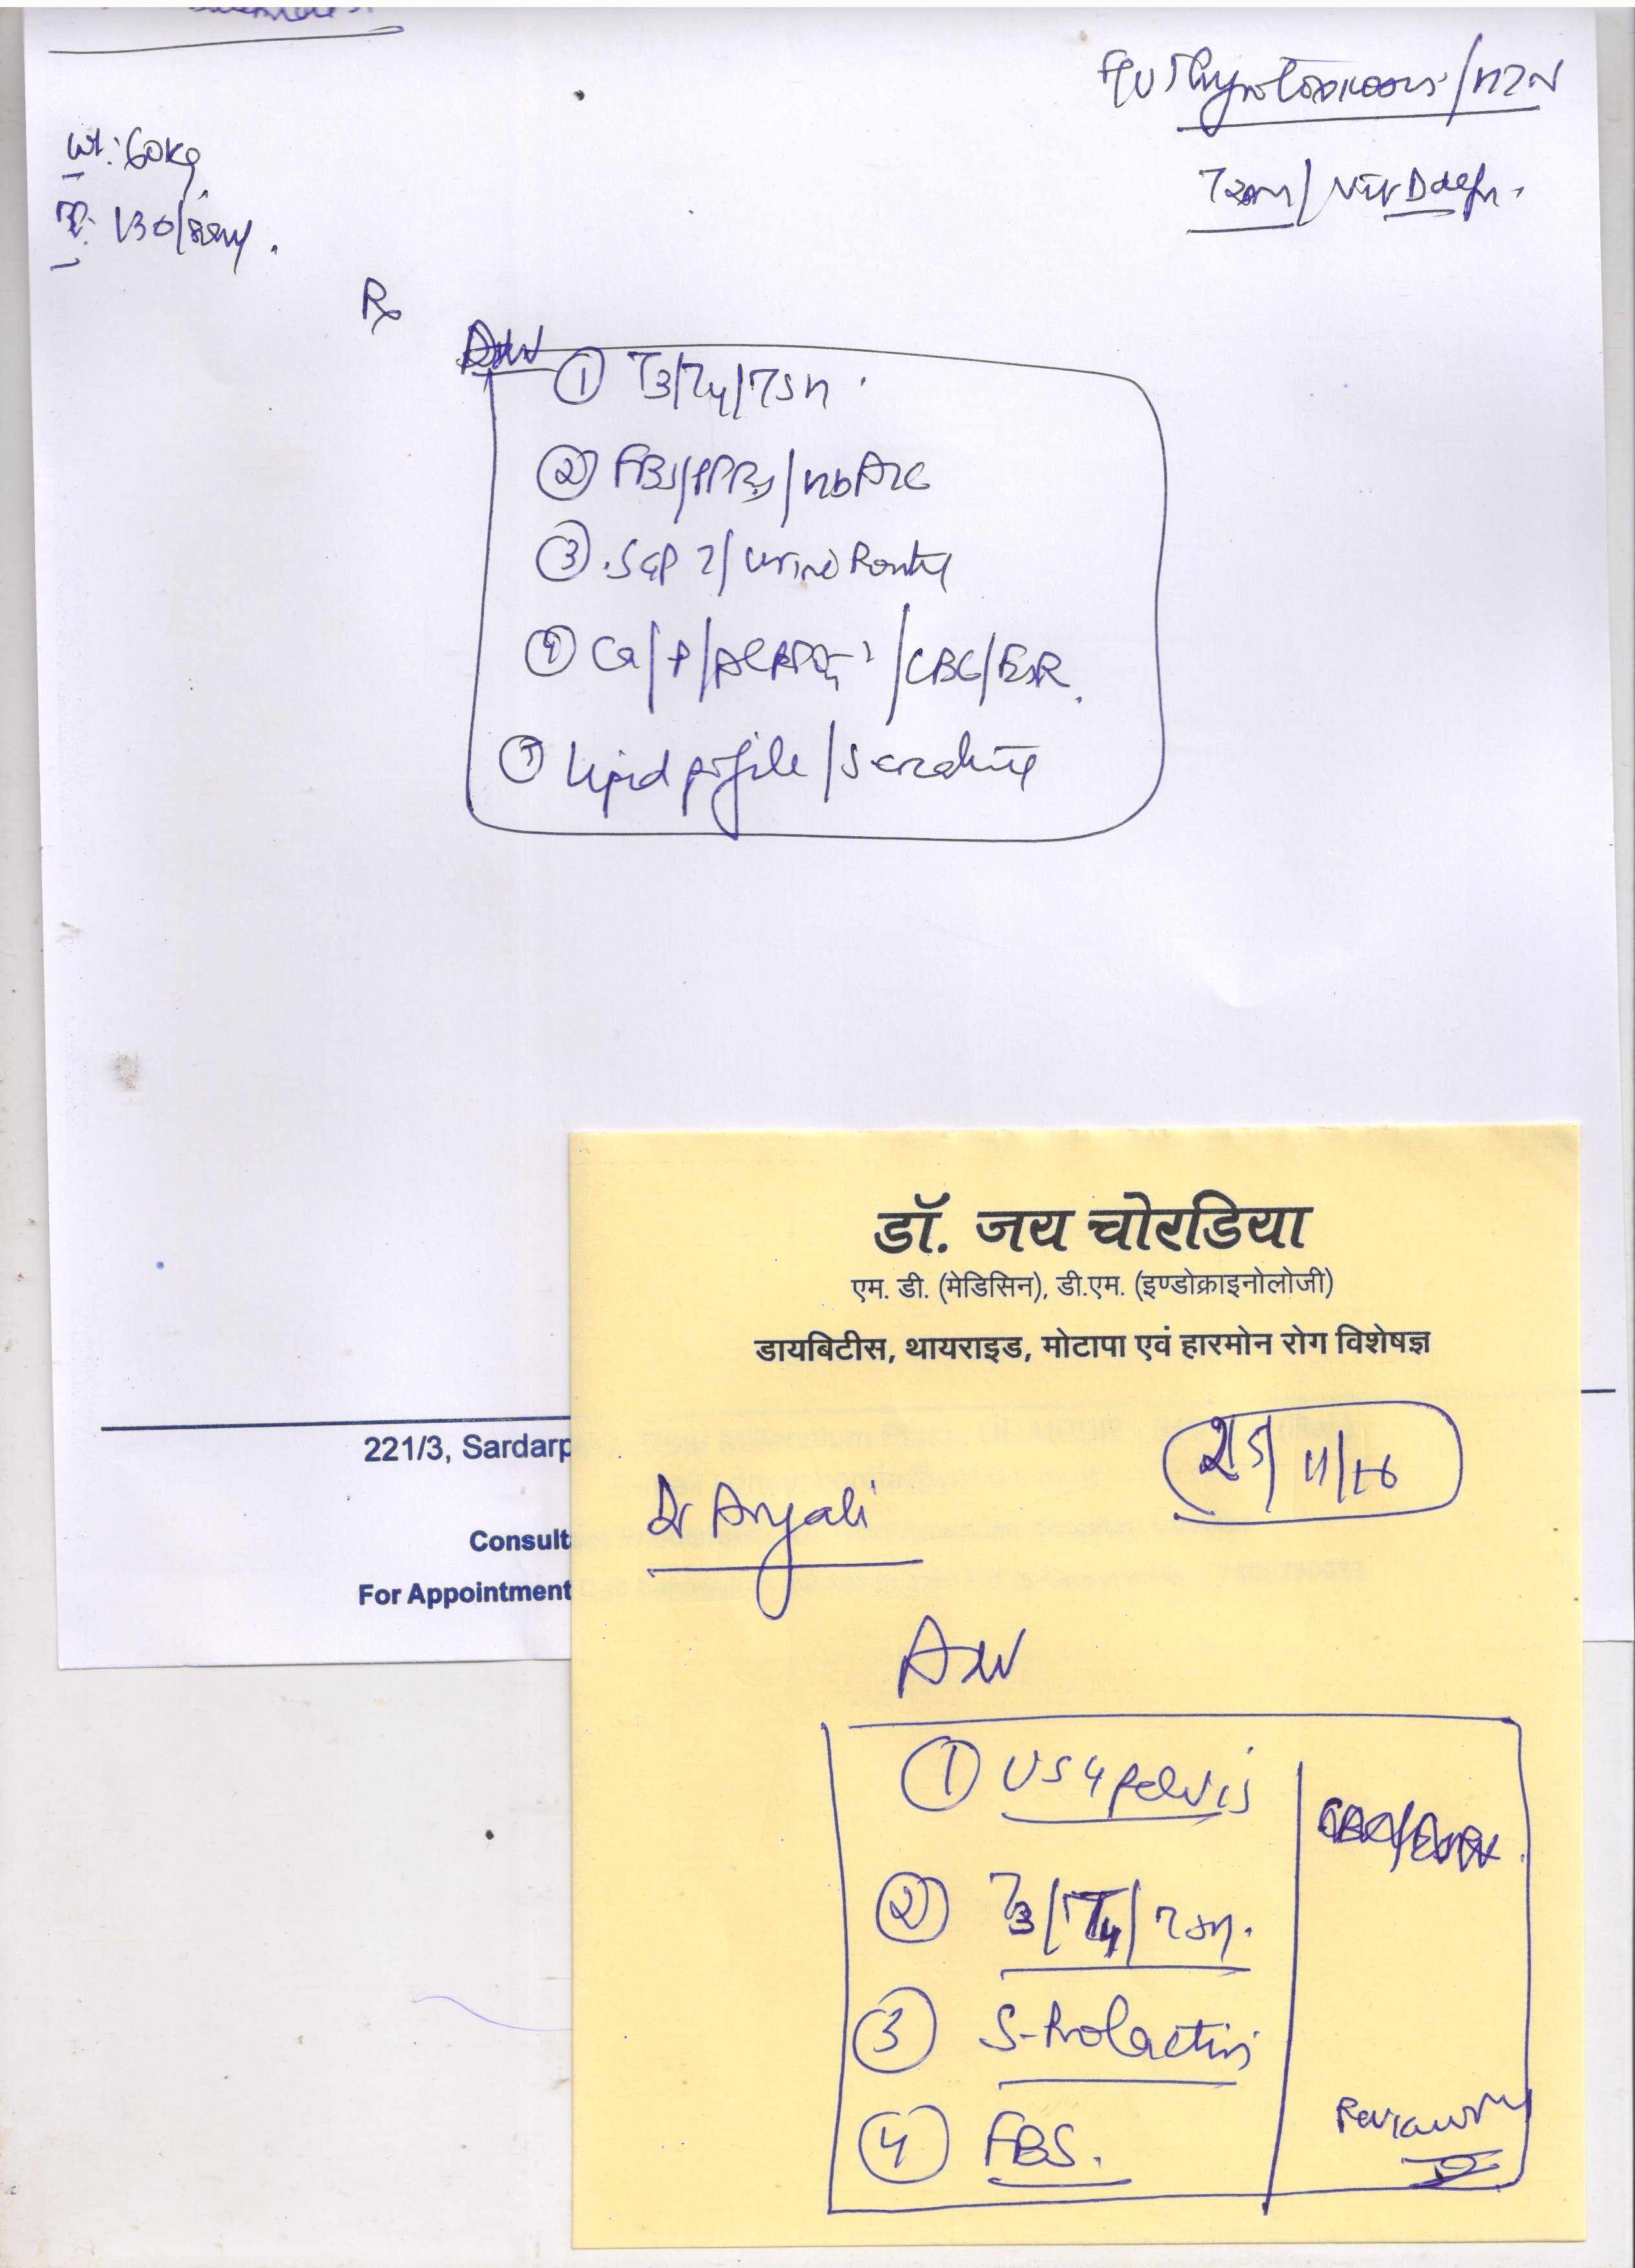 F/U Thyrotoxicosis/HTN
T2DM/Vit D defn.
Wt: 60kg
BP: 130/80
Rx
Adv
① T3/T4/TSH
② FBS/PPBS/HbA1C
③ SGPT/Urine Routine
④ Ca/P/AlkPO4/CBC/ESR
⑤ Lipid profile/S creatinine
डॉ. जय चोरडिया
एम. डी. (मेडिसिन), डी.एम. (इण्डोक्राइनोलोजी)
डायबिटीस, थायराइड, मोटापा एवं हारमोन रोग विशेषज्ञ
221/3, Sardarp
Consult
For Appointment
25/11/16
Dr Anjali
Adv
① USG pelvis
CBC/ESR
② T3/T4/TSH.
③ S-Prolactin
④ FBS.
Review